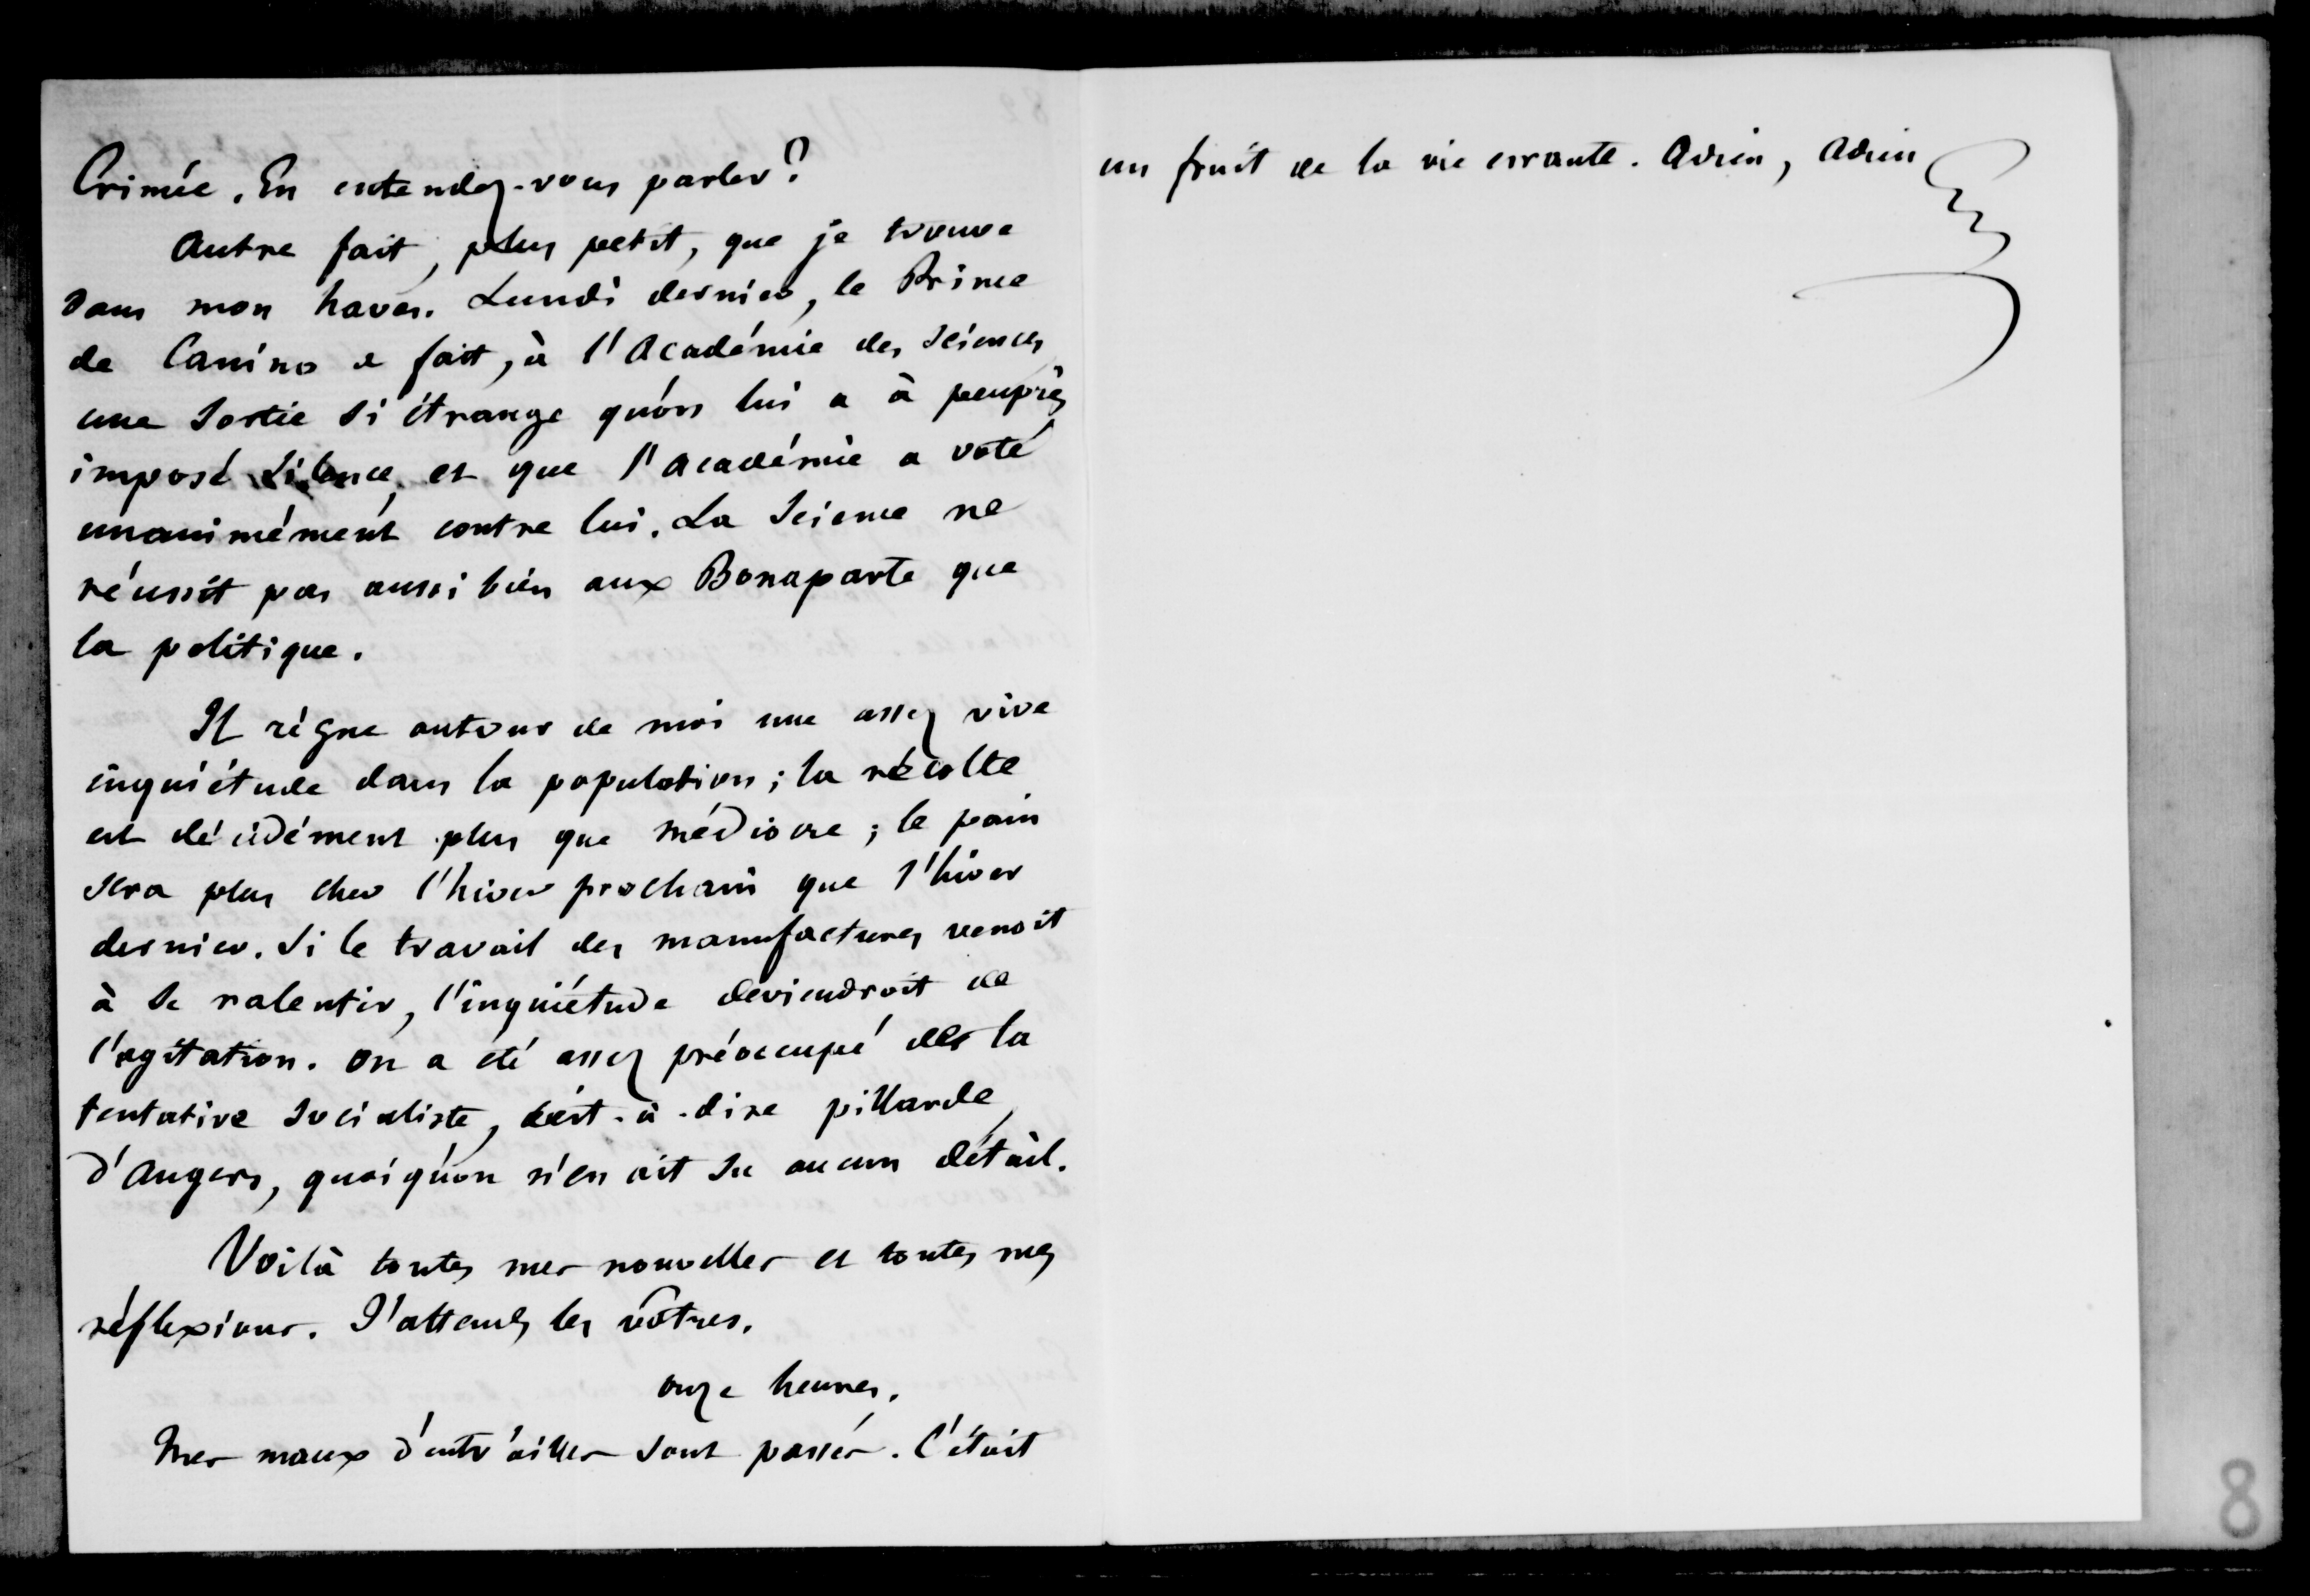 Crimée. En entendez-vous parler ?
Autre fait, plus petit, que je trouve
dans mon havas. Lundi dernier, le Prince
de Canino a fait, à l'Académie des Sciences
une sortie si étrange qu'on lui a à peuprès
imposé silence, et que l'académie a voté
unanimément contre lui. La Science ne
réussit pas aussi bien aux Bonaparte que
la politique.
Il règne autour de moi une assez vive
inquiétude dans la population ; la récolte
est décidément plus que médiocre ; le pain
sera plus cher l'hiver prochain que l'hiver
dernier. Si le travail des manufactures venoit
à se ralentir, l'inquiétude deviendroit de
l'agitation. On a été assez préoccupé de la
tentative socialiste, c'est-à-dire pillarde,
d'Angers, quoiqu'on n'en ait su aucun détail.
Voilà toutes mes nouvelles et toutes mes
réflexions. J'attends les vôtres.
onze heures.
Mes maux d'entrailles sont passés. C'étoit
un fruit de la vie errante. Adieu, Adieu
8